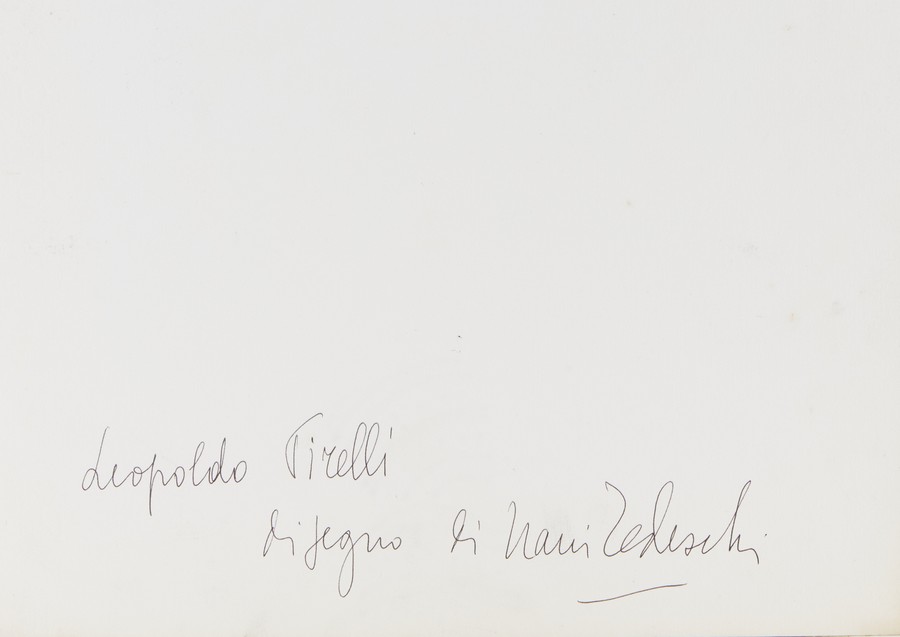 Leopoldo Pirelli
disegno di Nani Tedeschi